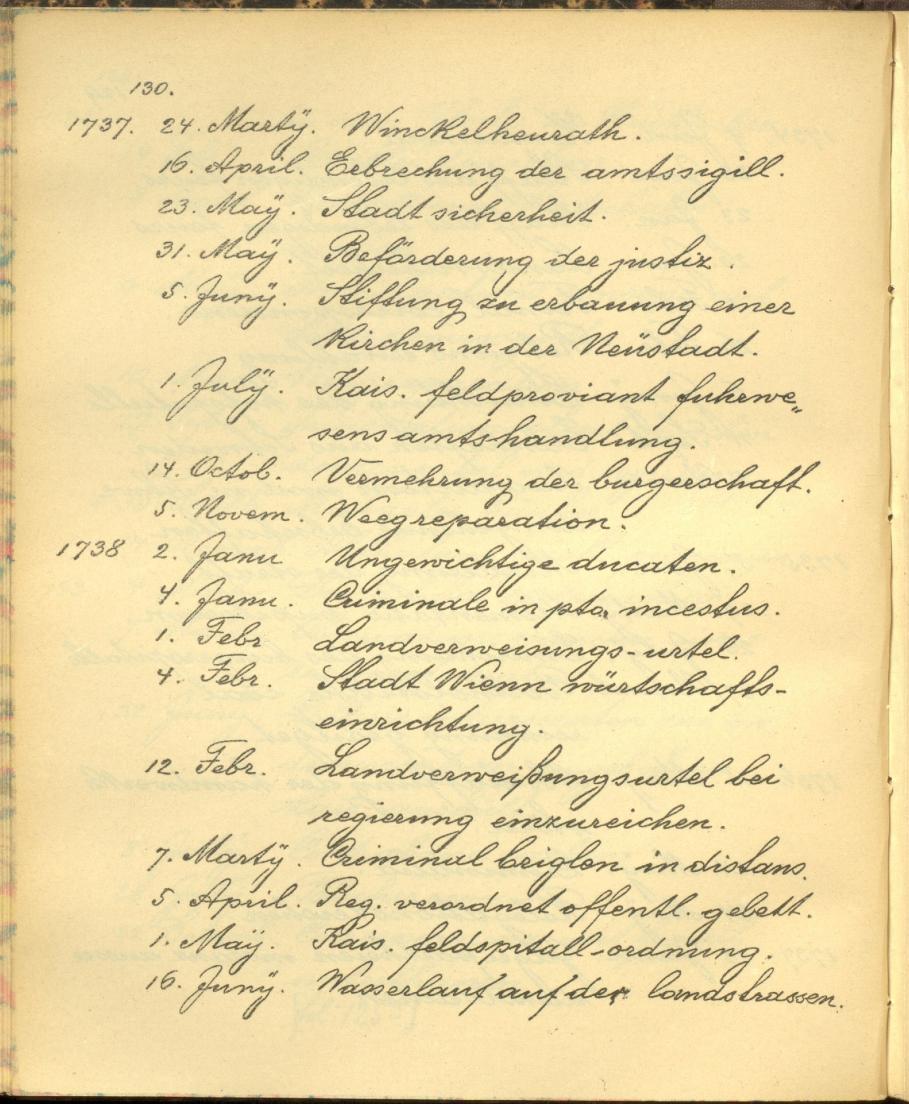 130.
1737. 24. Martÿ. Winckelheurath.
16. April. Erbrechung der amtssigill.
23. Maÿ. Stadt sicherheit.
31. Maÿ. Beförderung der justiz.
5. Junÿ. Stiftung zu erbauung einer
Kirchen in der Neüstadt.
1. Julÿ. Kais. feldproviant fuhrwe„
sens amtshandlung.
14. Octob. Vermehrung der burgerschaft.
5. Novem. Weegreparation.
1738 2. Janu Ungewichtige ducaten.
4. Janu. Criminale in pto. incestus.
1. Febr Landverweisungs-urtel.
4. Febr. Stadt Wienn würtschafts-
einrichtung.
12. Febr. Landverweißungsurtel bei
regierung einzureichen.
7. Martÿ. Criminal in distans.
5. April. Reg. verordnet offentl. gebett.
1. Maÿ. Kais. feldspitall-ordnung.
16. Junÿ. Wasserlauf auf der landstrassen.